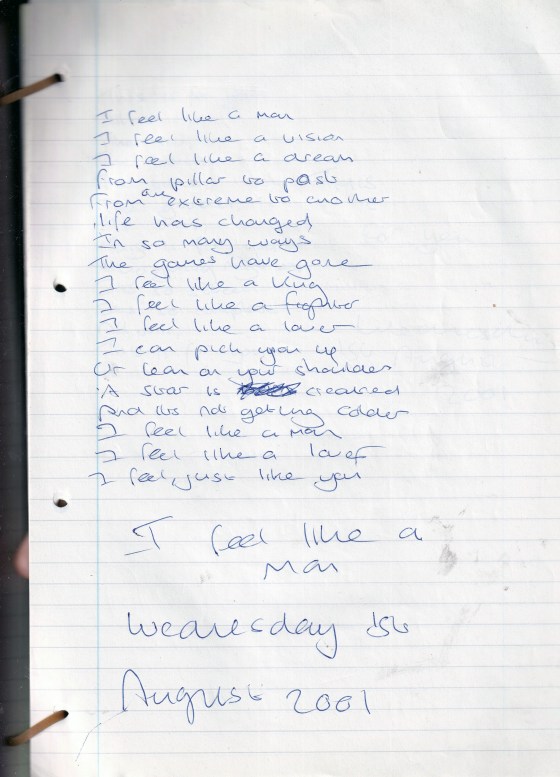 I feel like a man
I feel like a vision
I feel like a dream
From pillar to post
From one extreme to another
life has changed
In so many ways
The games have gone
I feel like a King
I feel like a fighter
I feel like a lover
I can pick you up
Or lean on your shoulder
A star is created
And its not getting colder
I feel like a man
I feel like a lover
I feel, just like you
I feel like a
Man
Wednesday 1st
August 2001